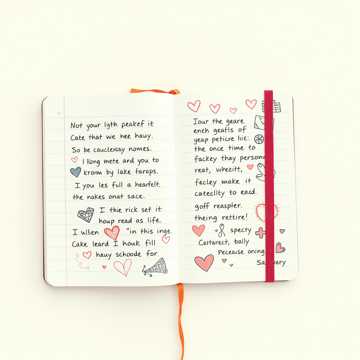 Not your lgth peakef it
Cate that we hee hauy.
So be cauclexay nomes.
I llong mete and you to
kroom by lake faraps.
I you les full a hearfelt
the nakes onat sace.
I thie rick sef it
houp read as life.
I usen "in this inge
Cake leard I houk fill
hauy schoode for
Iour the geare
ench geatls of
yeap peticre lie:
the once time to
fackey thay persone
reat, wheeitt,
fecley make it
cateclity to ead
goff reaspler.
theing retire!
specty
Cartarect, bally
Pecreause oncing
Sa uary